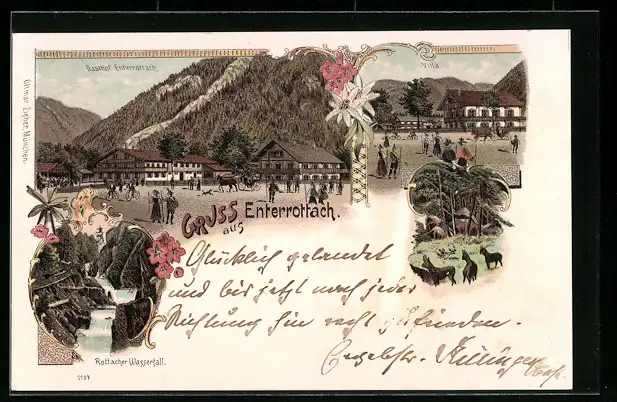 Gasthof Enterrottach.
Villa
Ottmar Zieher München.
GRUSS
aus
Enterrottach.
Glücklich gelandet
und bis jetzt nach jeder
Richtung hin recht zufrieden.
Rottacher Wasserfall.
1199